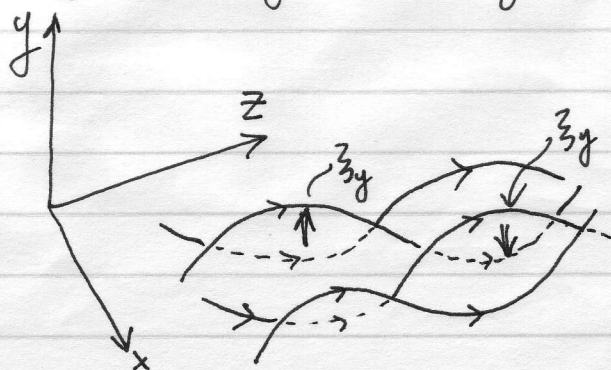 y
z
ξy
ξy
x